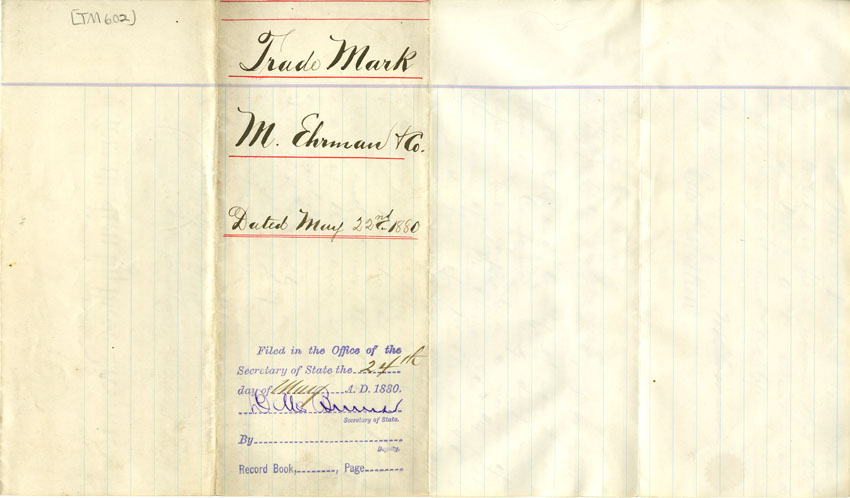 [TM 602]
Trade Mark
M. Ehrman & Co.
Dated May 22nd 1880
Filed in the Office of the
Secretary of State the 24th
day of May A. D. 1880.
Secretary of State.
By
Deputy.
Record Book, Page